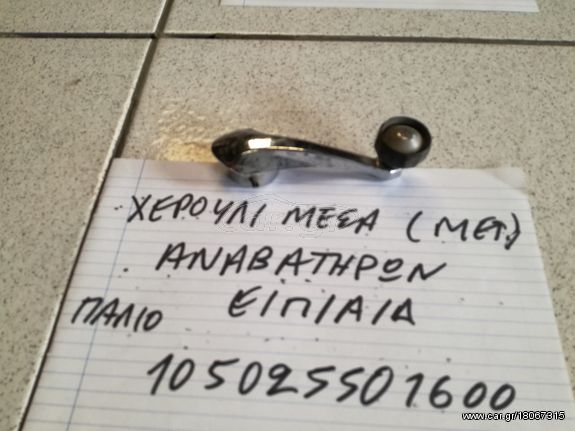 ΧΕΡΟΥΛΙ ΜΕΣΑ (ΜΕΤ.)
ΑΝΑΒΑΤΗΡΩΝ
ΠΑΛΙΟ
105025501600
www.car.gr/18067315